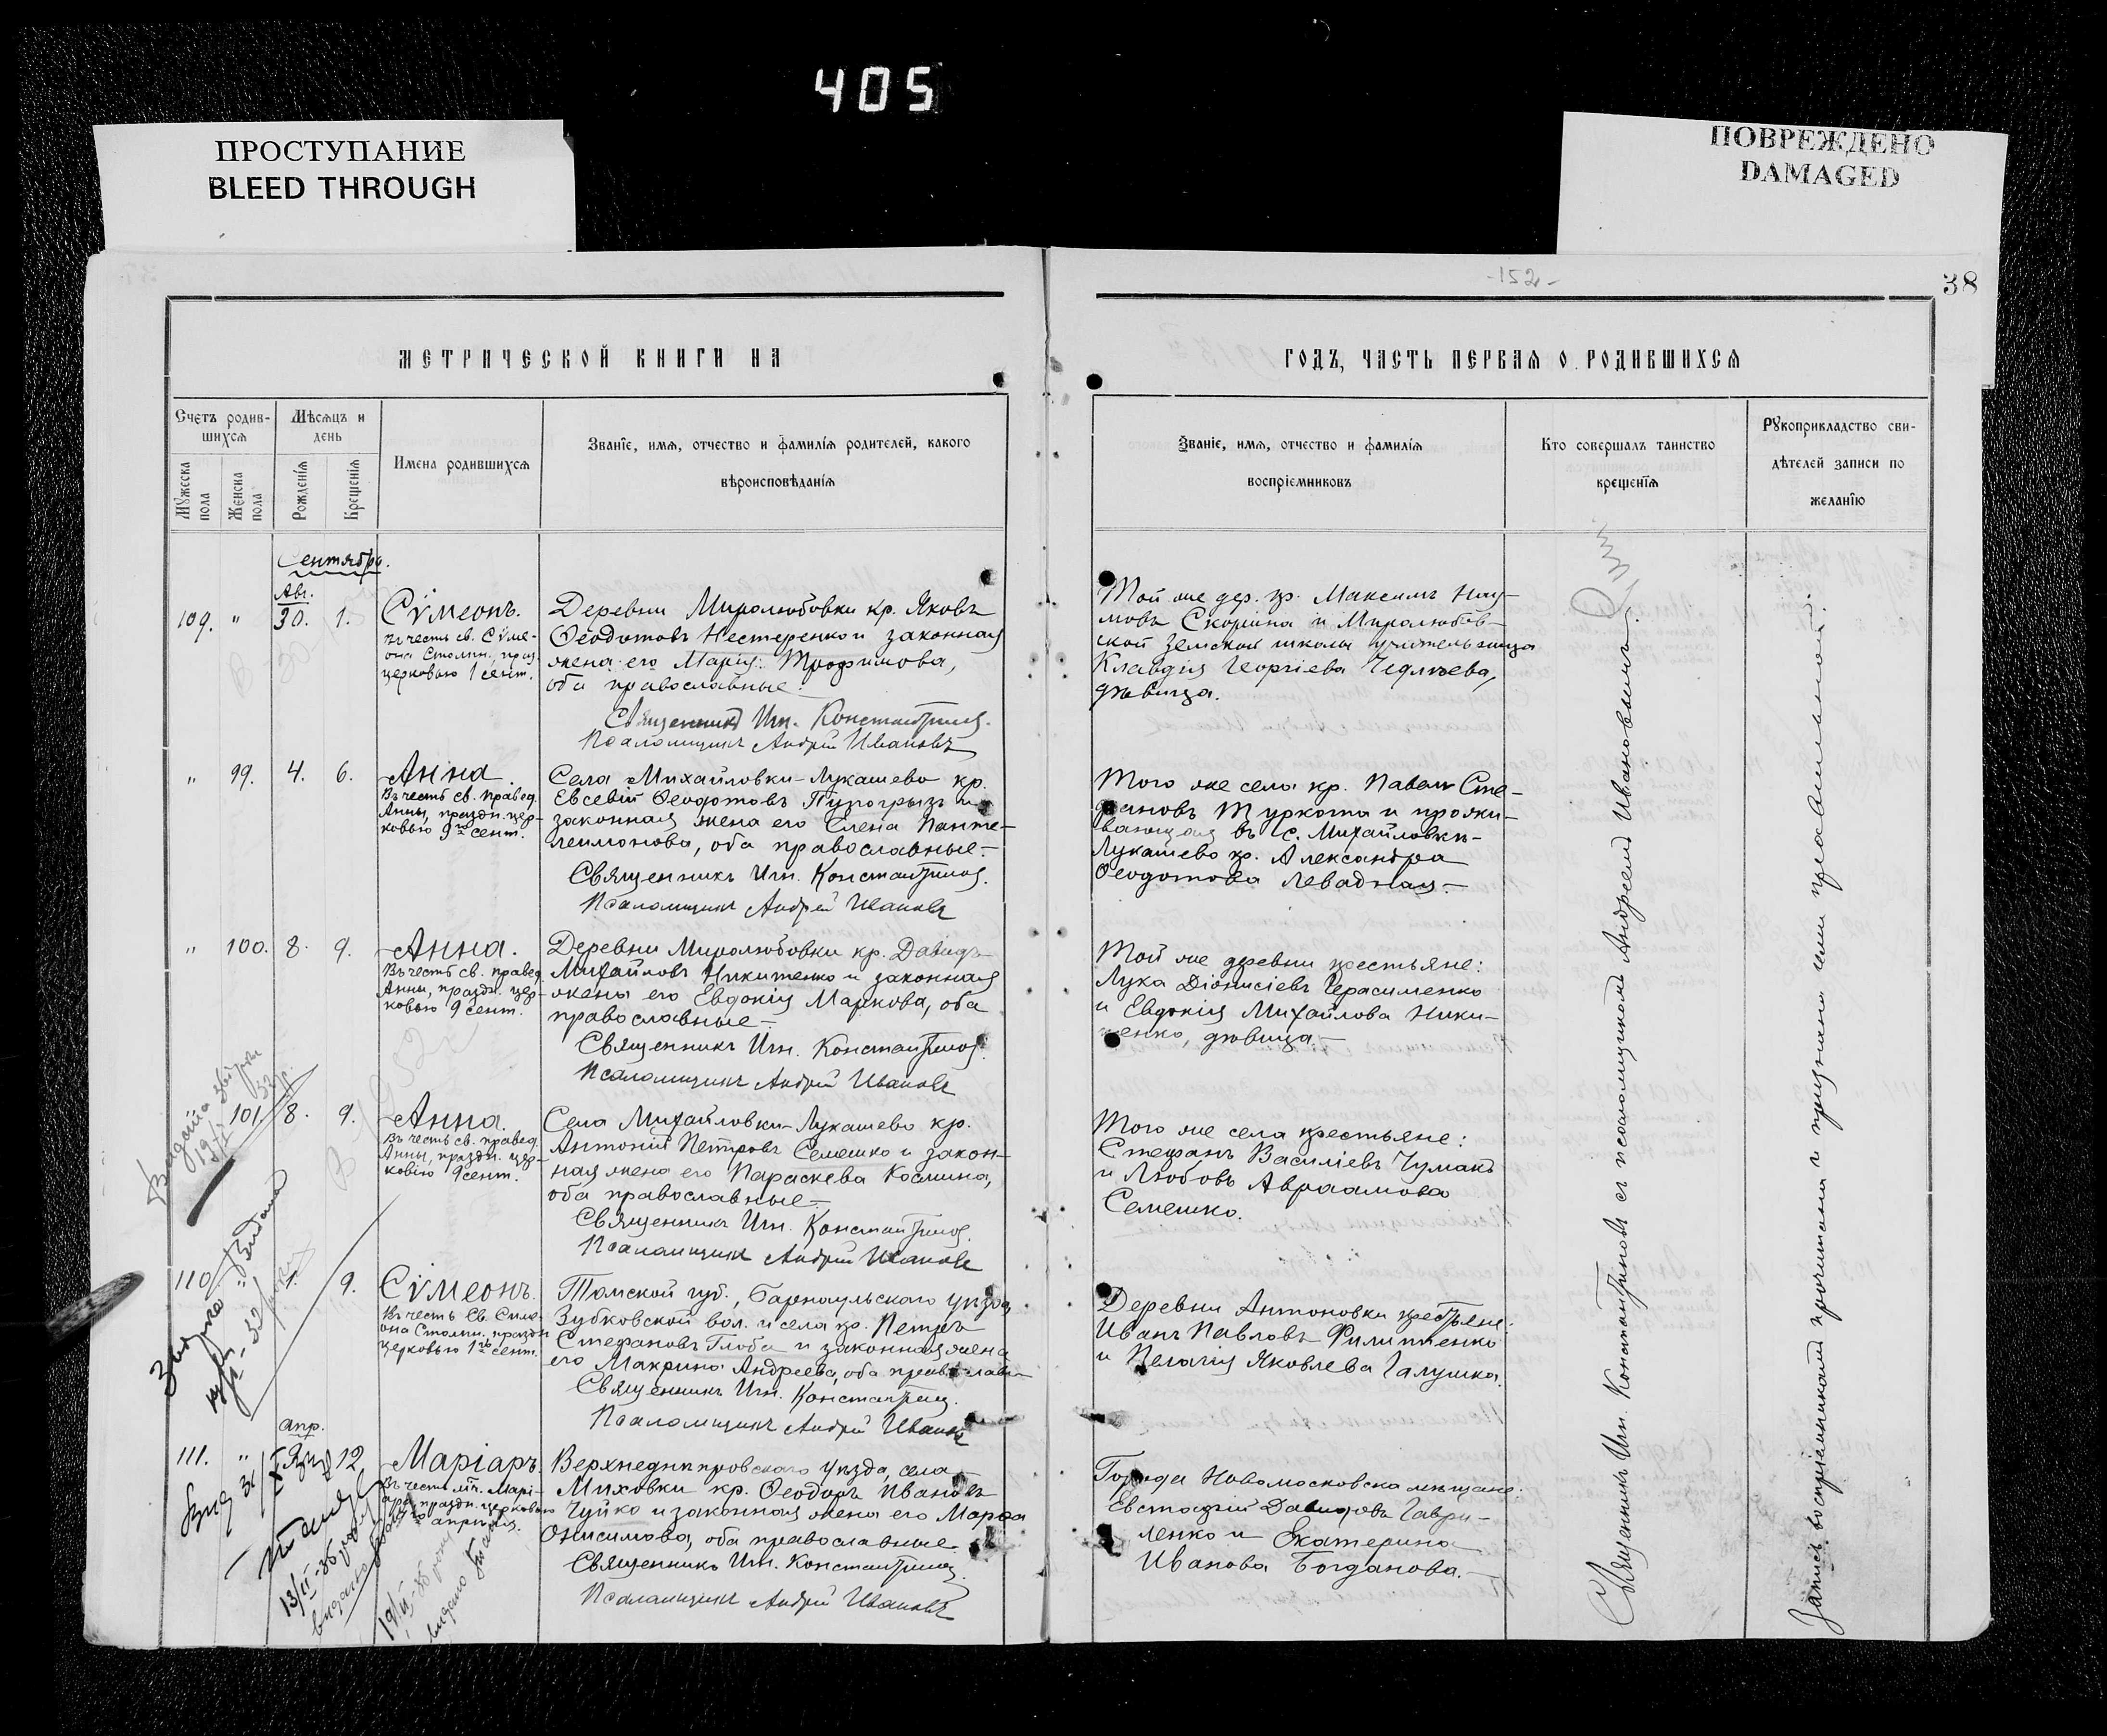 405
ПРОСТУПАНИЕ
BLEED THROUGH
ПОВРЕЖДЕНО
DAMAGED
-152-
38
МЕТРИЧЕСКОЙ КНИГИ НА
ГОДЪ, ЧАСТЬ ПЕРВАЯ О РОДИВШИХСЯ
Счетъ родив-
шихся
Мѣсяцъ и
день
Мужеска пола
Женска пола
Рожденія
Крещенія
Имена родившихся
Званіе, имя, отчество и фамилія родителей, какого
вѣроисповѣданія
Званіе, имя, отчество и фамилія
воспріемниковъ
Кто совершалъ таинство
крещенія
Рукоприкладство сви-
дѣтелей записи по
желанію
Сентябрь.
Авг.
109. " 30. 1.
Сѵмеонъ.
Въ честь св. Сѵме-
она Столпн., празд.
церковью 1 сент.
Деревни Миролюбовки кр. Яковъ
Ѳеодотовъ Нестеренко и законная
жена его Марія Трофимова,
оба православные.
Священникъ Игн. Константинов.
Псаломщикъ Андрей Ивановъ
Той же дер. кр. Максимъ Нау-
мовъ Скорина и Миролюбов-
ской земской школы учительница
Клавдія Георгіева
дѣвица.
" 99. 4. 6.
Анна.
Въ честь св. правед.
Анны, праздн. цер-
ковью 9го сент.
Села Михайловки-Лукашево кр.
Евсевій Ѳеодотовъ Пупогрызъ и
законная жена его Елена Панте-
леимонова, оба православные.-
Священникъ Игн. Константинов.
Псаломщикъ Андрей Ивановъ
Того же села кр. Павелъ Сте-
фановъ Туркота и прожи-
вающая въ с. Михайловки-
Лукашево кр. Александра
Ѳеодотова Левадная.-
" 100. 8. 9.
Анна.
Въ честь св. правед.
Анны, праздн. цер-
ковью 9 сент.
Деревни Миролюбовки кр. Давидъ
Михайловъ Никитенко и законная
жена его Евдокія Маркова, оба
православные.-
Священникъ Игн. Константинов.
Псаломщикъ Андрей Ивановъ
Той же деревни крестьяне:
Лука Діонисіевъ Герасименко
и Евдокія Михайлова Ники-
тенко, дѣвица.-
101. 8. 9.
Анна.
Въ честь св. правед.
Анны, праздн. цер-
ковію 9 сент.
Села Михайловки-Лукашево кр.
Антоній Петровъ Семешко и закон-
ная жена его Параскева Космина,
оба православные.-
Священникъ Игн. Константинов.
Псаломщикъ Андрей Ивановъ
Того же села крестьяне:
Стефанъ Василіевъ Чумакъ
и Любовь Авраамова
Семешко.
110. " 1. 9.
Сѵмеонъ.
Въ честь
она Столпн. праздн.
церковью 1го сент.
Томской губ., Барнаульскаго уѣзда
Зубковской вол. и села кр. Петръ
Стефановъ Глоба и законная жена
его Макрина Андреева, оба православн.
Священникъ Игн. Константинов.
Псаломщикъ Андрей Ивановъ
Деревни Антоновки крестьяне:
Иванъ Павловъ Филиппенко
и Пелагія Яковлева Галушка.
апр.
111. " 12
Маріаръ.
Въ честь Марі-
ара праздн. церковью
апрѣля.
Верхнеднѣпровскаго уѣзда, села
Миховки кр. Ѳеодоръ Ивановъ
Чуйко и законная жена его Марѳа
Онисимова, оба православные.
Священникъ Игн. Константинов.
Псаломщикъ Андрей Ивановъ
Города Новомосковска мѣщане:
Евстафій Давидовъ Гаври-
ленко и Екатерина
Иванова Богданова.-
13/II-36
видано
Священникъ Игн. Константиновъ съ псаломщикомъ Андреемъ Ивановымъ.
Запись воспріемниками прочитана и признана ими правильной.